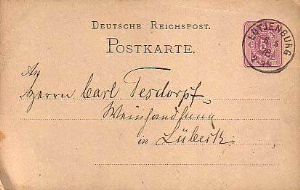 DEUTSCHE REICHSPOST.
POSTKARTE.
LÜTJENBURG
An
Herrn Carl Tesdorpf
Weinhandlung
in Lübeck